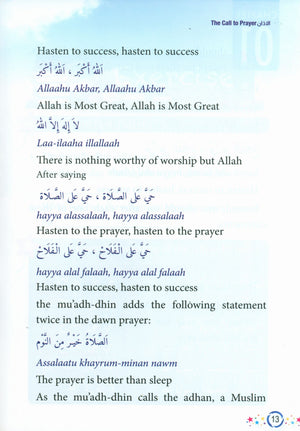 The Call to Prayer الأذان
Hasten to success, hasten to success
اَللهُ أَكْبَر ، اَللهُ أَكْبَر
Allaahu Akbar, Allaahu Akbar
Allah is Most Great, Allah is Most Great
لاَ إِلهَ إِلاَّ اللهُ
Laa-ilaaha illallaah
There is nothing worthy of worship but Allah
After saying
حَيَّ عَلَى الصَّلاَة ، حَيَّ عَلَى الصَّلاَة
hayya alassalaah, hayya alassalaah
Hasten to the prayer, hasten to the prayer
حَيَّ عَلَى الْفَلاَحْ ، حَيَّ عَلَى الْفَلاَحْ
hayya alal falaah, hayya alal falaah
Hasten to success, hasten to success
the mu’adh-dhin adds the following statement
twice in the dawn prayer:
الصَّلاَةُ خَيْرٌ مِنَ النَّوْم
Assalaatu khayrum-minan nawm
The prayer is better than sleep
As the mu’adh-dhin calls the adhan, a Muslim
13